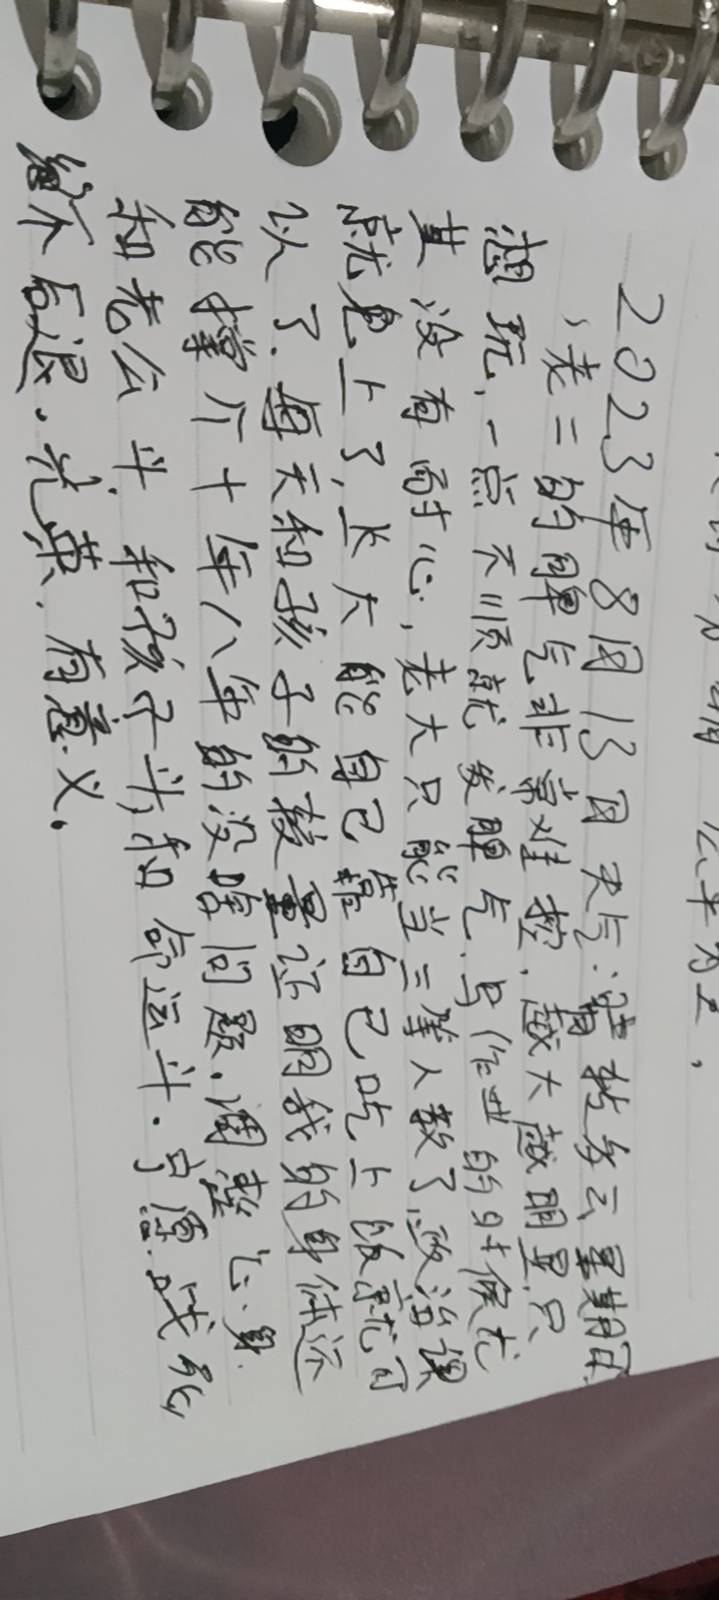 2023年8月13日 天气:晴转多云 星期日
老二的脾气非常难控,越大越明显,只
想玩,一点不顺就发脾气,写作业的时候尤
其没有耐心,老大只能当三等人教了,政治课
就免上了,长大能自己靠自己吃上饭就可
以了.每天和孩子的较量证明我的身体还
能撑个十年八年的没啥问题.调整心身.
和老公斗,和孩子斗,和命运斗.宁愿战死
绝不后退.光荣.有意义.